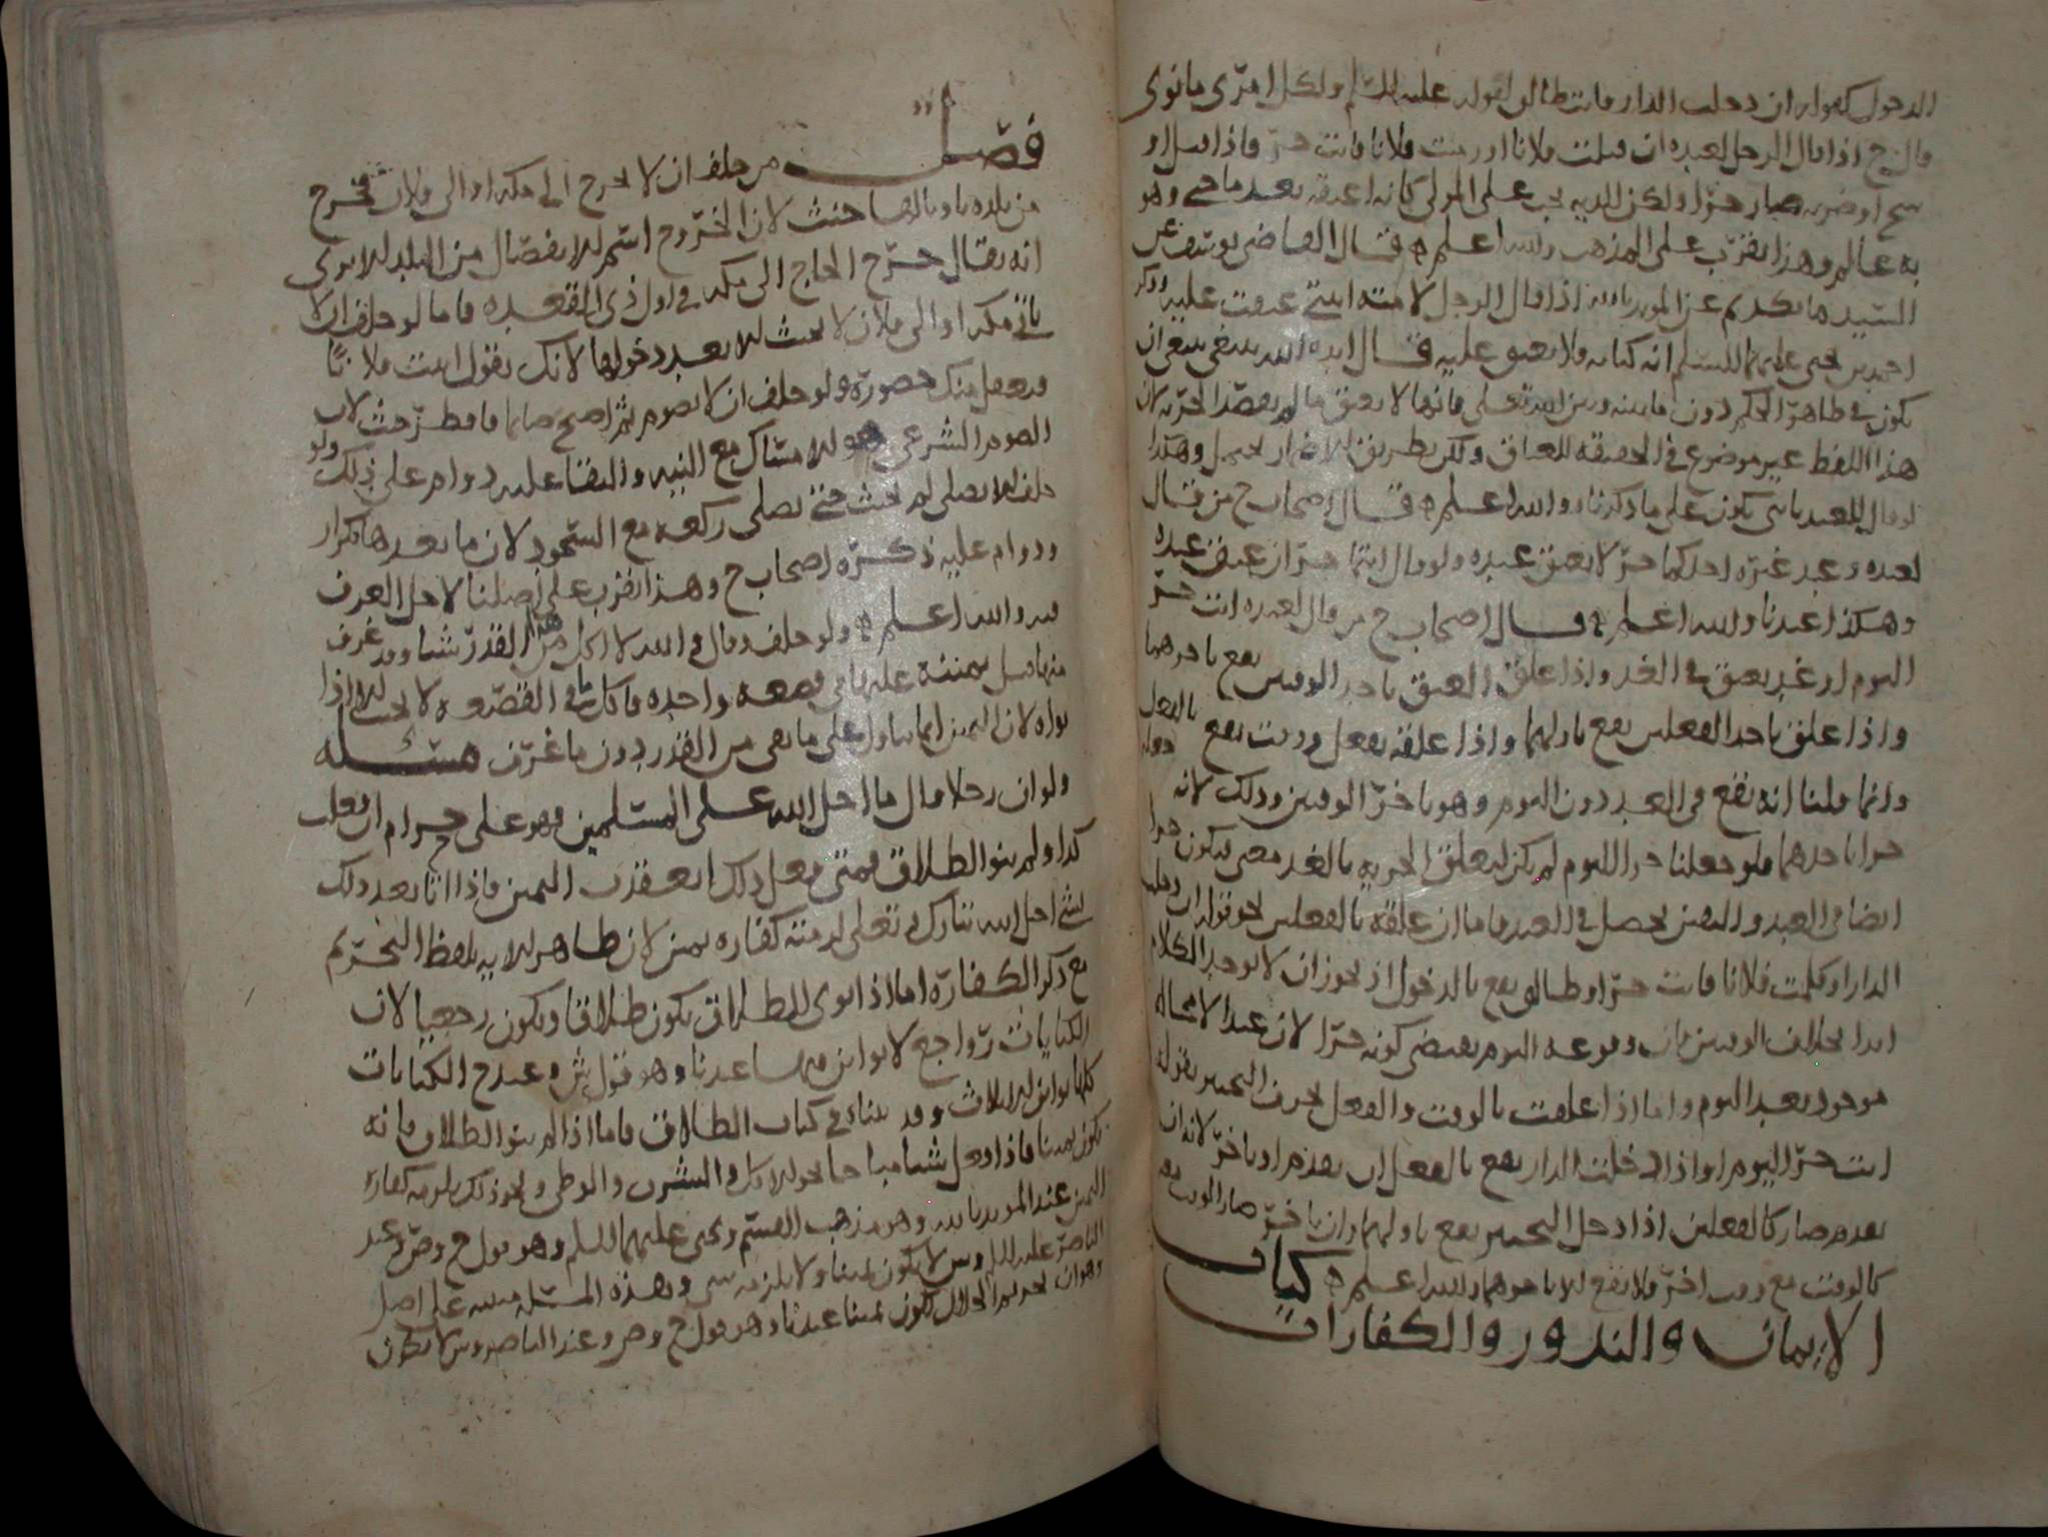 الدخول كقوله ان دخلت الدار فانت طالق لقوله عليه السلم ولكل امرئ ما نوى
قال ح اذا قال الرجل لعبده ان قتلت فلانا او رميت فلانا فانت حر فاذا قتل او
شج او ضربه صار حرا ولكن الديه تجب على المولى كانه اعتقه بعد ما جنى وهو
به عالم وهذا يقرب على المذهب والله اعلم ه قال القاضي يوسف عن
السيد ما نكديم عن المويد بالله اذا قال الرجل لامته انتي عتقت عليه وذكر
احمد بن يحيى عليهما السلم انه كنايه ولا يعتق عليه قال ايده الله ينبغي ان
يكون في ظاهر الحكم دون ما بينه وبين الله تعلى فانها لا يعتق ما لم يقصد الحريه لان
هذا اللفظ غير موضوع في الحقيقه للعتاق ولكن بطريق الاضمار يحتمل وهكذا
لو قال للعبد يكون على ما ذكرناه والله اعلم ه قال اصحاب ح من قال
لعبده وعبد غيره احدكما حر لا يعتق عبده ولو قال انتما حران عتق عبده
وهكذا عندنا والله اعلم ه قال اصحاب ح من قال لعبده انت حر
اليوم او غد يعتق في الغد واذا علق العتق باحد الوقتين يقع باخرهما
واذا علق باحد الفعلين يقع باولهما واذا علقه بفعل ووقت يقع بالفعل
وانما قلنا انه يقع في الغد دون اليوم وهو باخر الوقتين وذلك لانه
حرا باحدهما فلو جعلنا حرا اليوم لم يكن ليعلق الحريه بالغد معنى ليكون حرا
ايضا في الغد واليقين يحصل في الغد فاما ان علقه بالفعلين نحو قوله ان دخلت
الدار او كلمت فلانا فانت حر او طالق يقع بالدخول اذ يجوز ان لا يوجد الكلام
ابدا بخلاف الوقتين فان وقوعه اليوم يقتضي كونه حرا لان غدا لا محاله
موجود بعد اليوم واما اذا علقت بالوقت والفعل بحرف التخيير بقوله
انت حر اليوم او اذا دخلت الدار يقع بالفعل ان تقدم او تاخر لانه ان
تقدم صار كالفعلين اذا دخل التخيير يقع باولهما وان تاخر صار الوقت معه
كالوقت مع وقت اخر فلا يقع الا باخرهما والله اعلم ه كتاب
الايمان والنذور والكفارات
فصل من حلف ان لا يخرج الى مكه او الى فلان فخرج
من بلده ناويا لها حنث لان الخروج اسم للانفصال من البلد الا ترى
انه يقال خرج الحاج الى مكه في اول ذي القعده فاما لو حلف ان لا
ياتي مكه او الى فلان لا يحنث الا بعد دخولها لانك تقول اتيت فلانا
ويعقل منك حضوره ولو حلف ان لا يصوم ثم اصبح صايما فافطر حنث لان
الصوم الشرعي هو الامساك مع النيه والبقا عليه دوام على ذلك ولو
حلف الا يصلي لم يحنث حتى يصلي ركعه مع السجود لان ما بعدها تكرار
ودوام عليه ذكره اصحاب ح وهذا يقرب على اصلنا لاجل العرف
فيه والله اعلم ه ولو حلف وقال والله لا اكل من هذا القدر شيا وقد غرف
منها قبل يمينه عليها في قصعه واحده فاكل ما في القصعه لا يحنث الا اذا
نواه لان اليمين انما يتناول على ما بقي من القدر دون ما غرف مسئله
ولو ان رجلا قال ما احل الله على المسلمين فهو علي حرام ان فعلت
كذا ولم ينو الطلاق فمتى فعل ذلك انعقدت اليمين فاذا اتا بعد ذلك
لشي احل الله تبارك وتعلى لزمته كفاره يمين لان ظاهر الايه بلفظ التحريم
مع ذكر الكفاره اما اذا نوى الطلاق يكون طلاقا ويكون رجعيا لان
الكنايات رواجع لا بواين فيها عندنا وهو قول ش وعند ح الكنايات
كلها بواين الا ثلاث وقد بيناه في كتاب الطلاق فاما اذا لم ينو الطلاق فانه
يكون يمينا فاذا فعل شيا مباحا نحو الاكل والشرب والوطي ونحو ذلك يلزمه كفارة
اليمين عند المويد بالله وهو مذهب القسم ويحيى عليهما السلم وهو قول ح وص وعند
الناصر عليه السلم وش لا يكون يمينا ولا يلزمه شي وهذه المسئله مبنيه على اصل
وهو ان تحريم الحلال يكون يمينا عندنا وهو قول ح وص وعند الناصر وش لا يكون